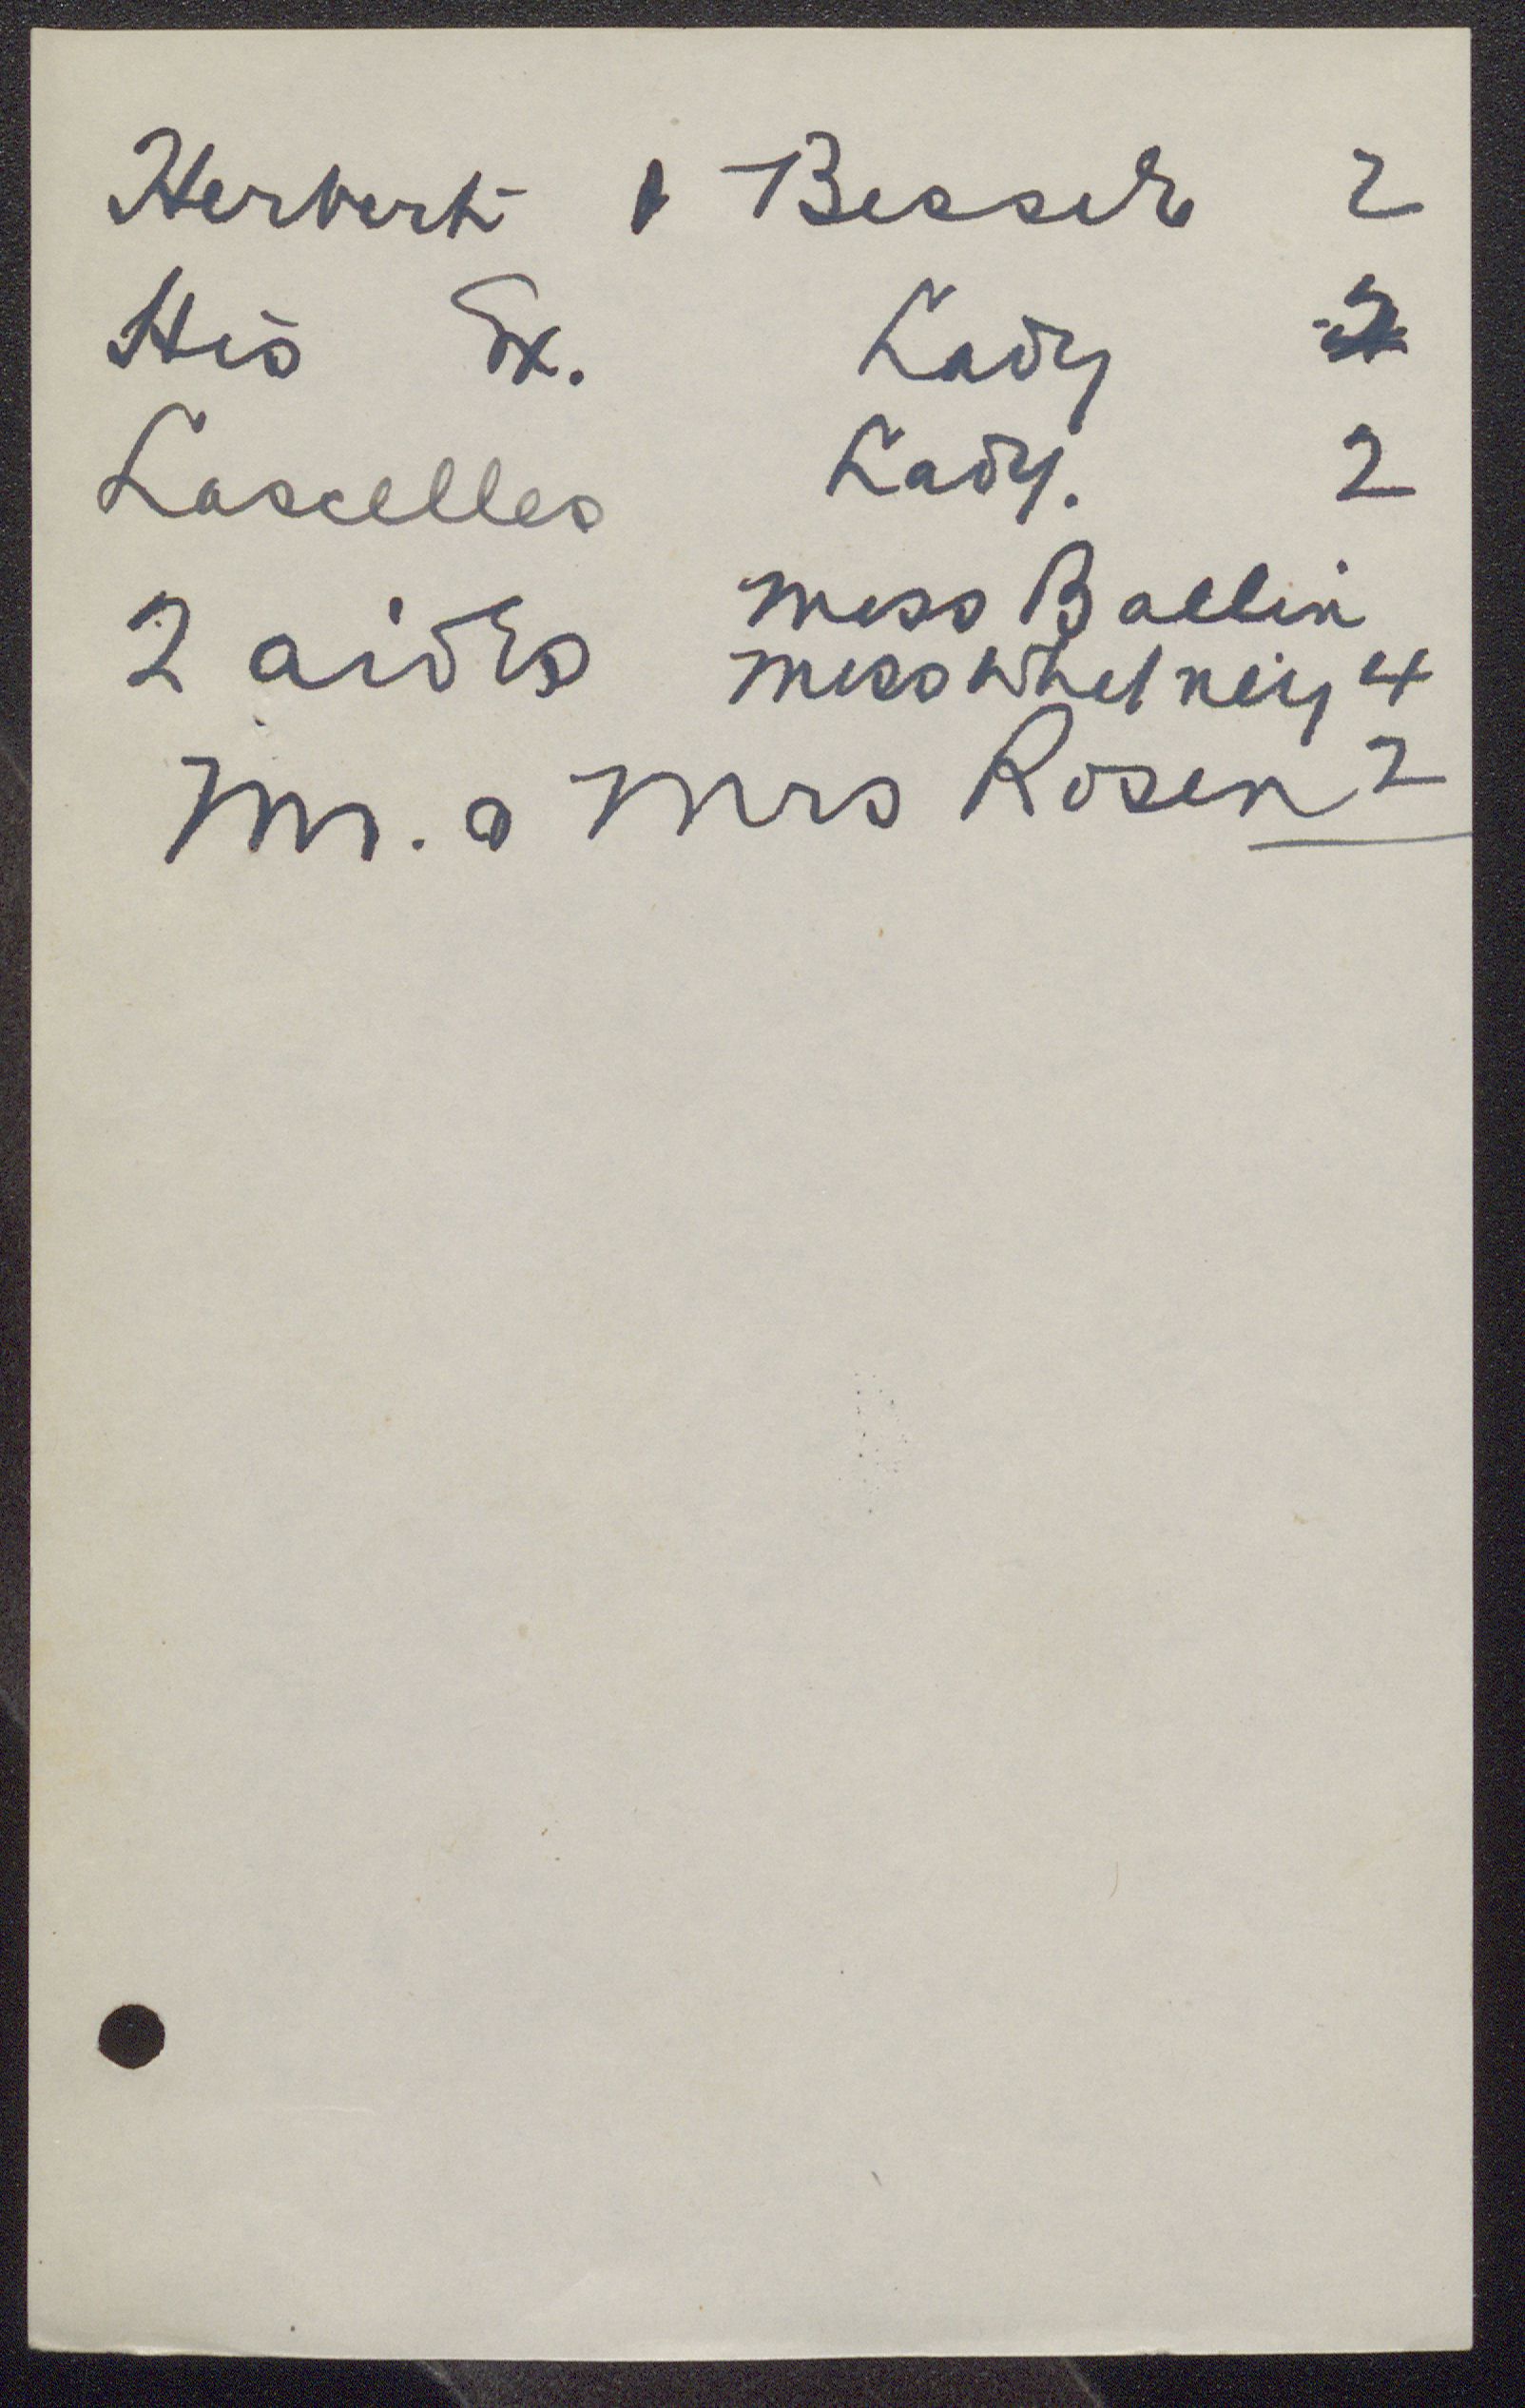 Herbert & Bessie 2
His Ex. Lady 2
Lascelles Lady. 2
2 aides Miss Ballin
Miss Whitney 4
Mr. & Mrs Rosen 2